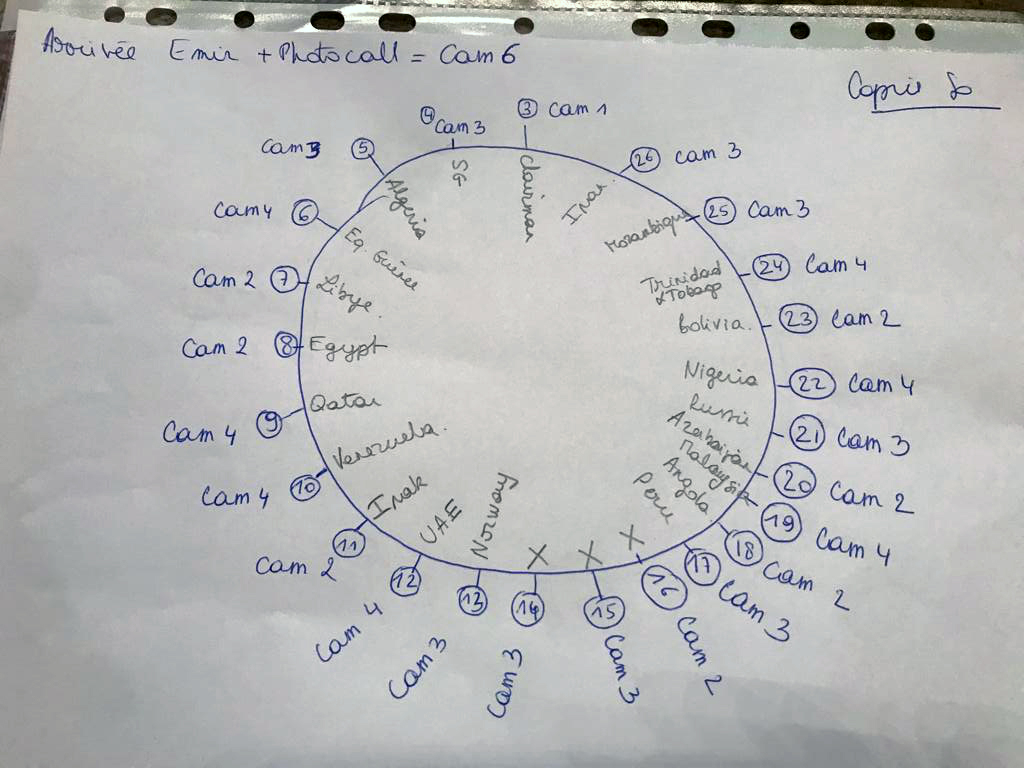 Arrivée Emir + Photocall = Cam 6
③ Cam 1
④ Cam 3
⑤ Cam 3
⑥ Cam 4
⑦ Cam 2
⑧ Cam 2
⑨ Cam 4
⑩ Cam 4
⑪ Cam 2
⑫ Cam 4
⑬ Cam 3
⑭ Cam 3
⑮ Cam 3
⑯ Cam 2
⑰ Cam 3
⑱ Cam 2
⑲ Cam 4
⑳ Cam 2
㉑ Cam 3
㉒ Cam 4
㉓ Cam 2
㉔ Cam 4
㉕ Cam 3
㉖ Cam 3
Chairman
SG
Algeria
Eq. Guinee
Libye.
Egypt
Qatar
Venezuela.
Irak
UAE
Norway
X
X
X
Peru
Angola
Malaysia
Azerbaijan
Russie
Nigeria
Bolivia.
Trinidad
& Tobago
Mozambique
Iran.